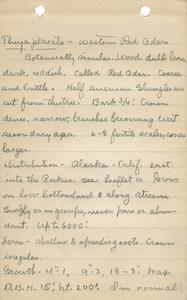 Thuja plicata - Western Red Cedar
Botanically similar. Wood dull brown,
dark, reddish. Called Red Cedar. Coarse
and brittle. Half American Shingles are
cut from this tree. Bark 3/4". Crown
dense, narrow, branches becoming erect
secondary axes, 6-8 fertile scales, cones
larger.
Distribution - Alaska - Calif. east
into the Rockies. See leaflet 11. Grows
on low bottomland & along streams.
Singly or in groups, never pure or abun-
dant. Up to 6000'.
Form - shallow & spreading roots. Crown
irregular.
Growth - 4"-1, 9"-2, 18-3". Max
D.B.H. 15', ht. 200'. In normal